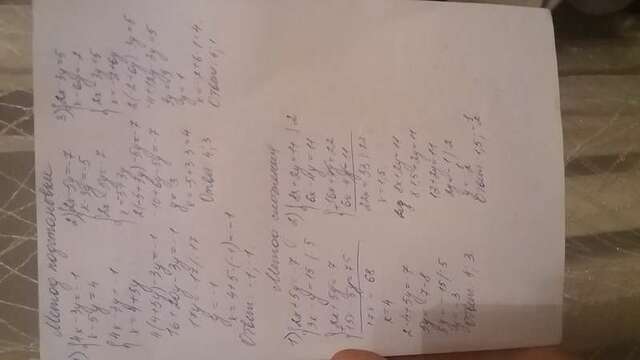 Метод подстановки
1) {4x-3y=-1
x-5y=4
{4x-3y=-1
x=4+5y
4(4+5y)-3y=-1
16+20y-3y=-1
17y=-17 |:17
y=-1
x=4+5·(-1)=-1
Ответ: -1; -1.
2) {2x-5y=-7
x-3y=-5
{2x-5y=-7
x=-5+3y
2(-5+3y)-5y=-7
-10+6y-5y=-7
y=3
x=-5+3·3=4
Ответ: 4; 3
3) {2x-3y=5
x-6y=-2
{2x-3y=5
x=-2+6y
2(-2+6y)-3y=5
-4+12y-3y=5
y=1
x=-2+6·1=4
Метод сложения
1) {2x+5y=-7
3x-y=15 |·5
{2x+5y=-7
15x-5y=75
17x=68
x=4
2·4+5y=-7
5y=-7-8
5y=-15 |:5
y=-3
2) {8x+2y=11 |·2
6x-4y=11
{16x+4y=22
6x-4y=11
22x=33 |:22
x=1,5
8x+2y=11
8·1,5+2y=11
12+2y=11
2y=-1 |:2
Ответ: 1,5; -1/2